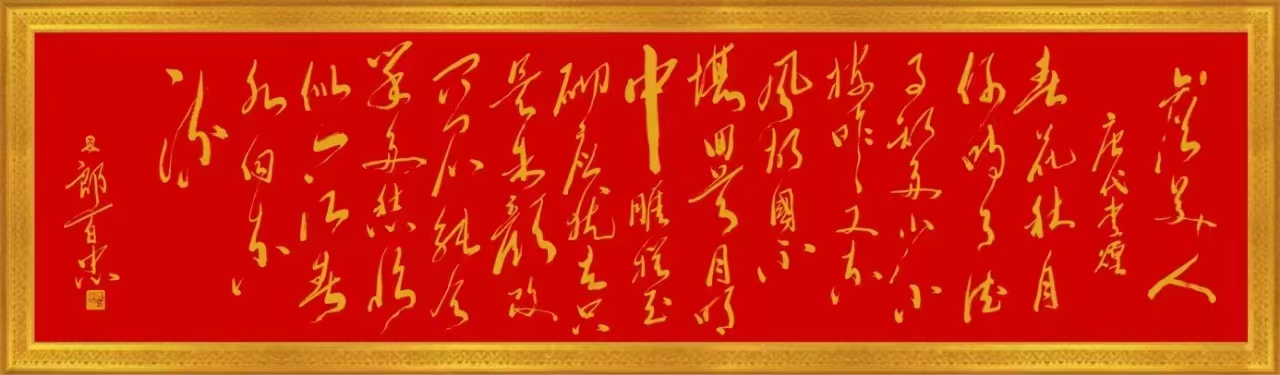 虞美人
唐代李煜
春花秋月
何时了往
事知多少小
楼昨夜又东
风故國不
堪回首月明
中雕栏玉
砌应犹在只
是朱颜改
问君能有
几多愁恰
似一江春
水向东
流
郎百忠